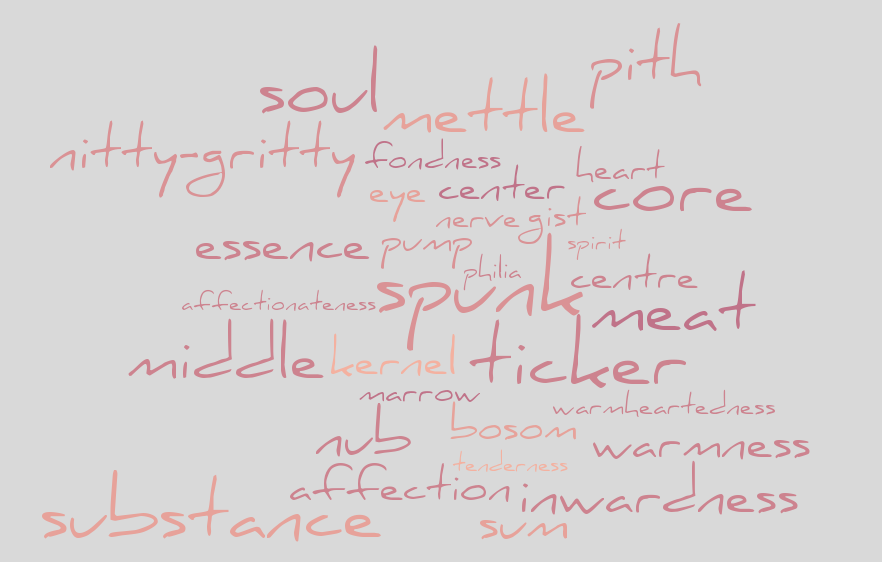 pith
soul
mettle
nitty-gritty fondness heart
eye center core
nerve gist
essence pump spirit
philia centre
affectionateness spunk meat
middle kernel ticker
marrow warmheartedness
nub bosom warmness
tenderness
affection inwardness
substance sum